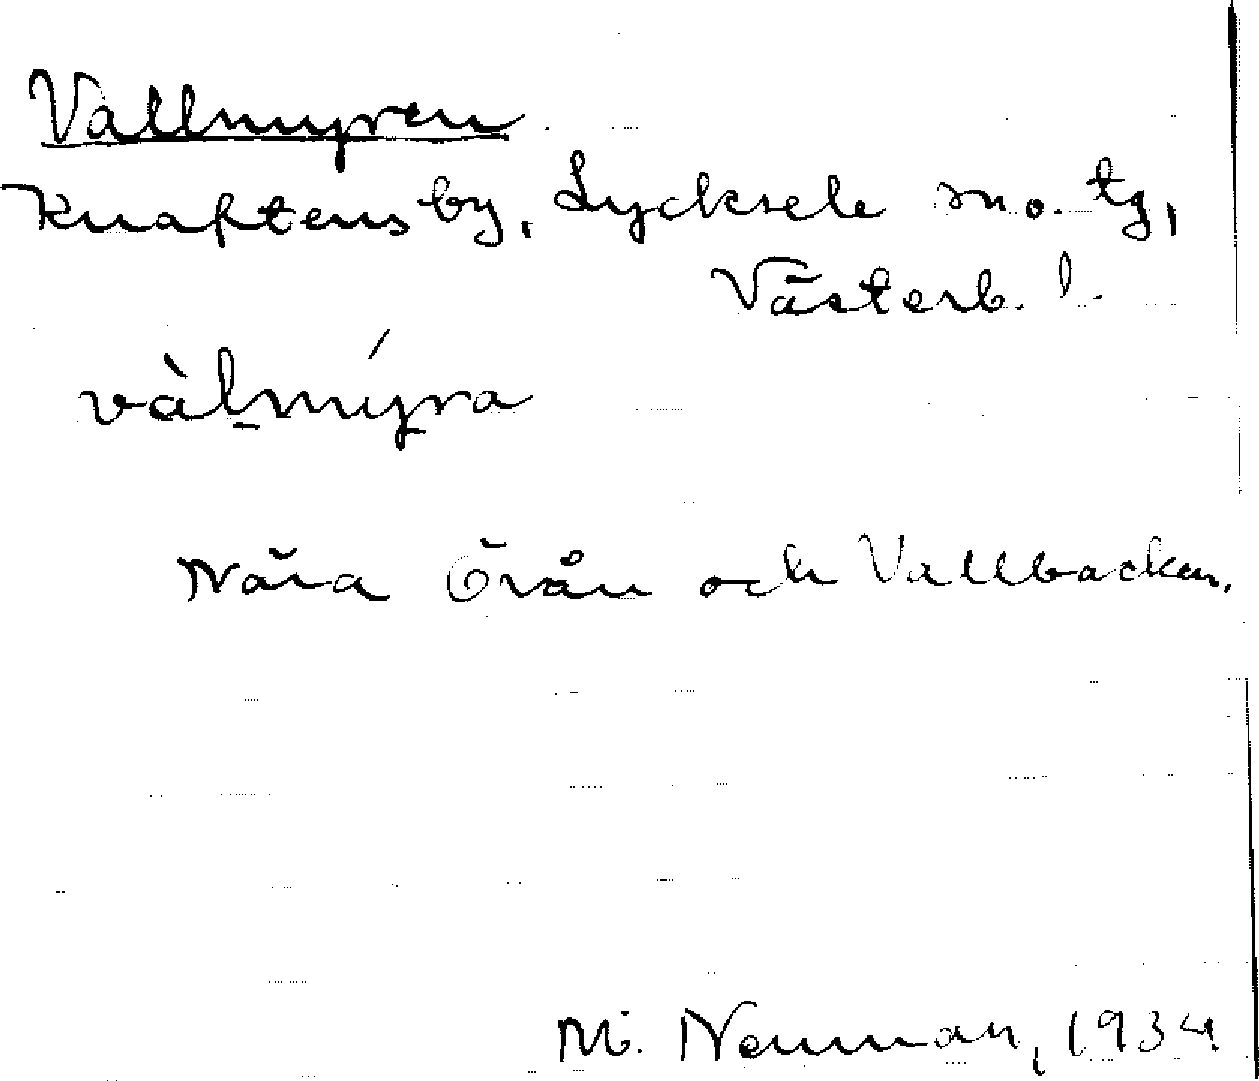 Vallmyren
Knaftens by, Lycksele sn o. tg,
Västerb. l.
vàl̠mýra
Nära Örån och Vallbacken.
M. Neuman, 1934